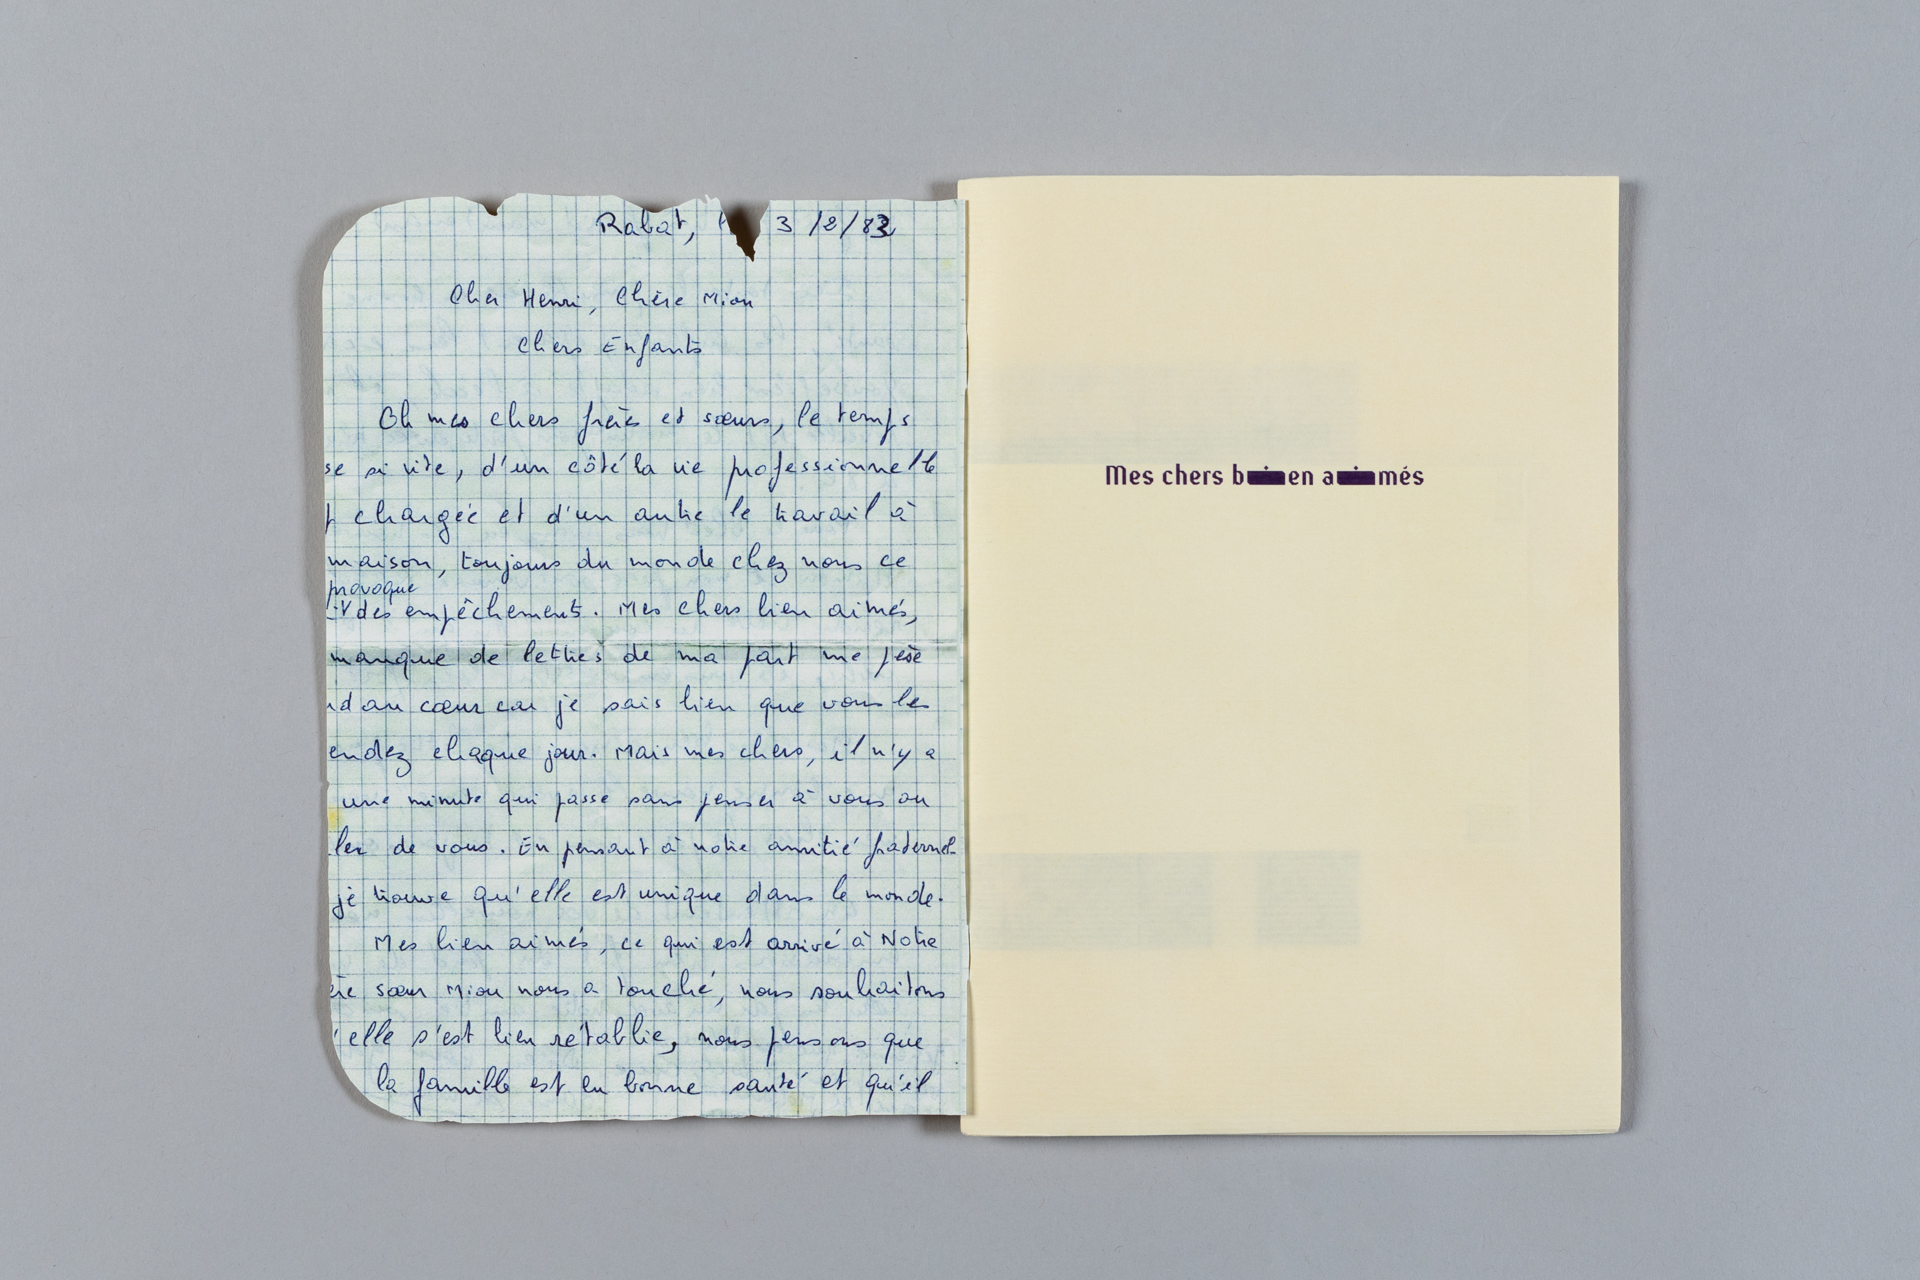 Rabat, 3/2/83
Cher Henri, Chère Mion
Chers Enfants
Oh mes chers frères et sœurs, le temps
se si vite, d'un côté la vie professionnelle
chargée et d'un autre le travail à
maison, toujours du monde chez nous ce
provoque
des empêchements. Mes chers bien aimés,
manque de lettres de ma part me pèse
d au cœur car je sais bien que vous les
endez chaque jour. Mais mes chers, il n'y a
une minute qui passe sans penser à vous ou
ler de vous. En pensant à notre amitié fraternel-
je trouve qu'elle est unique dans le monde.
Mes bien aimés, ce qui est arrivé à Notre
ère sœur Mion nous a touché, nous souhaitons
'elle s'est bien rétablie, nous pensons que
la famille est en bonne santé et qu'il
Mes chers bien aimés